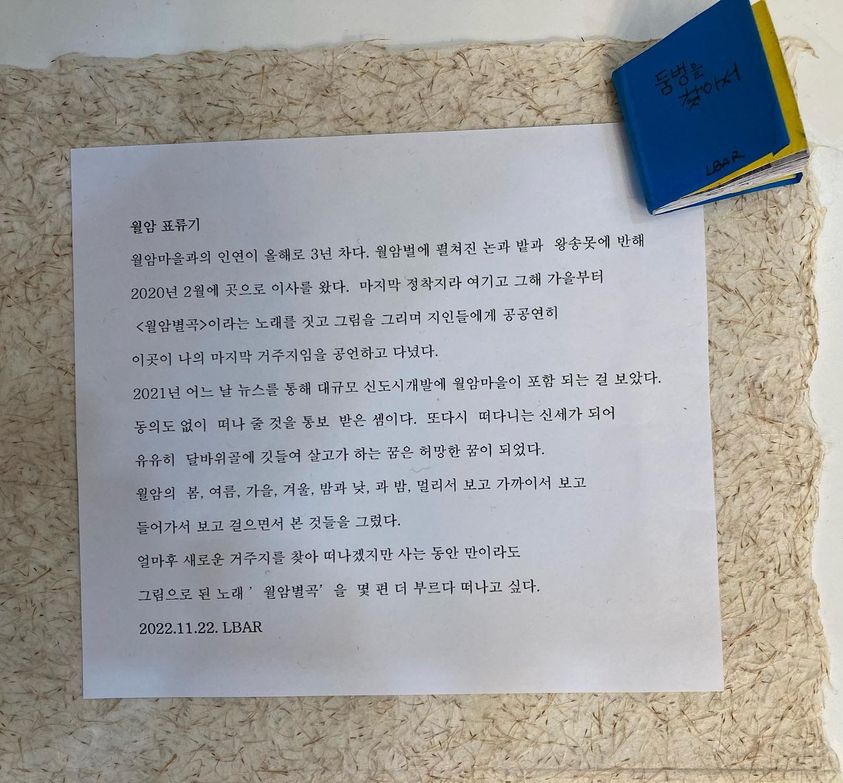 둠벙을
찾아서
LBAR
월암 표류기
월암마을과의 인연이 올해로 3년 차다. 월암벌에 펼쳐진 논과 밭과 왕송못에 반해
2020년 2월에 곳으로 이사를 왔다. 마지막 정착지라 여기고 그해 가을부터
<월암별곡>이라는 노래를 짓고 그림을 그리며 지인들에게 공공연히
이곳이 나의 마지막 거주지임을 공언하고 다녔다.
2021년 어느 날 뉴스를 통해 대규모 신도시개발에 월암마을이 포함 되는 걸 보았다.
동의도 없이 떠나 줄 것을 통보 받은 셈이다. 또다시 떠다니는 신세가 되어
유유히 달바위골에 깃들여 살고가 하는 꿈은 허망한 꿈이 되었다.
월암의 봄, 여름, 가을, 겨울, 밤과 낮, 과 밤, 멀리서 보고 가까이서 보고
들어가서 보고 걸으면서 본 것들을 그렸다.
얼마후 새로운 거주지를 찾아 떠나겠지만 사는 동안 만이라도
그림으로 된 노래 ' 월암별곡' 을 몇 편 더 부르다 떠나고 싶다.
2022.11.22. LBAR